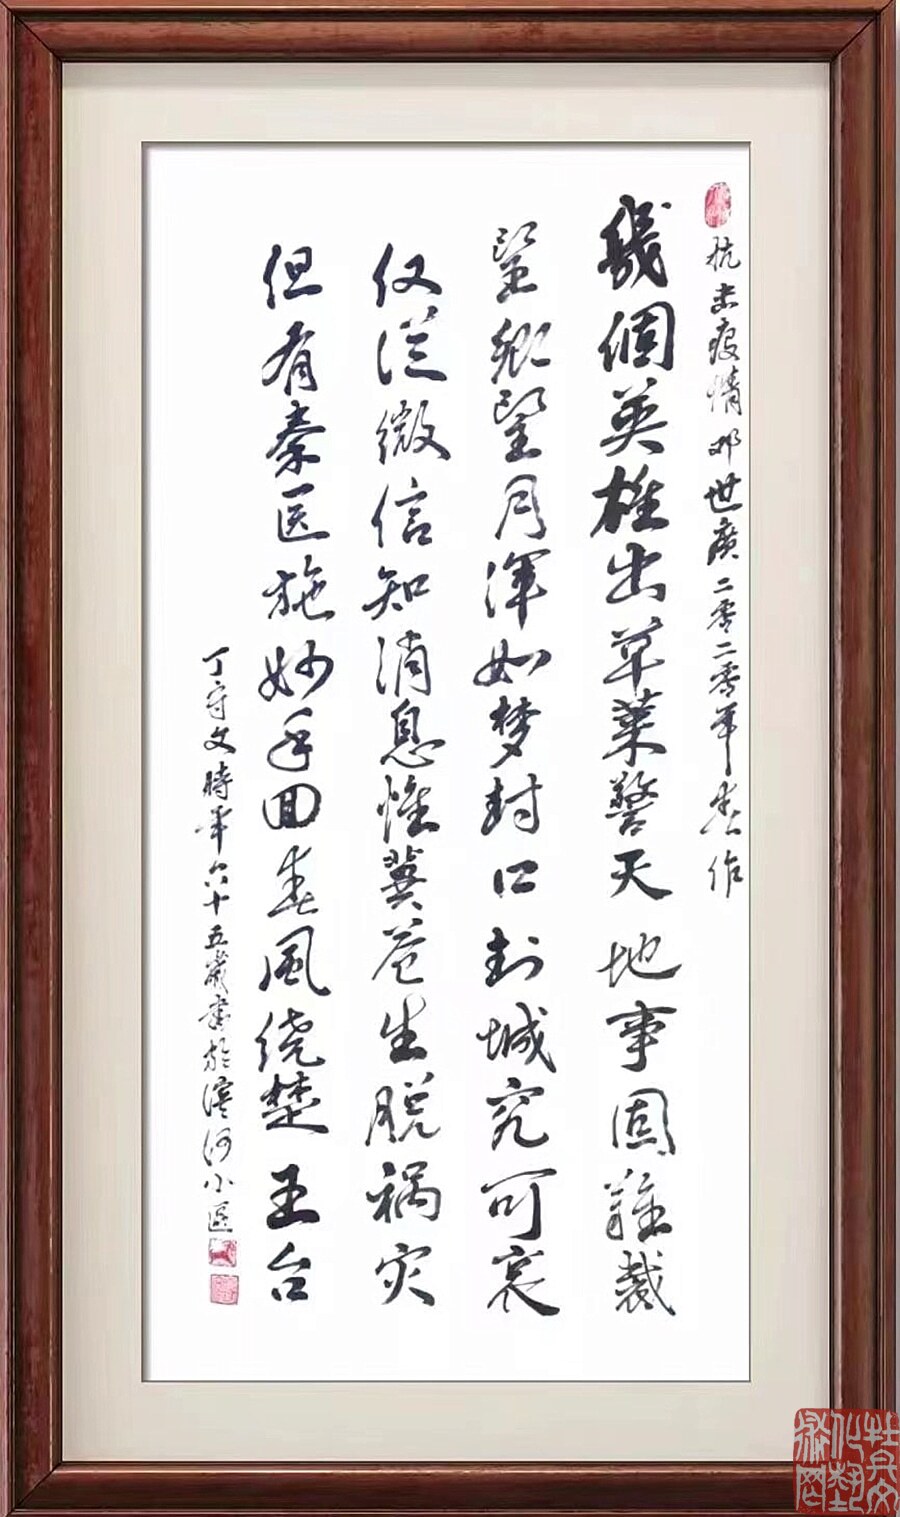 抗击疫情 邓世廣二零二零年春作
幾個英雄出草莱警天地事固難裁
望鄉望月渾如梦封口封城究可哀
仅從微信知消息惟冀苍生脱祸灾
但有秦医施妙手回春風绕楚王台
丁守文時年六十五歲書於滨河小區